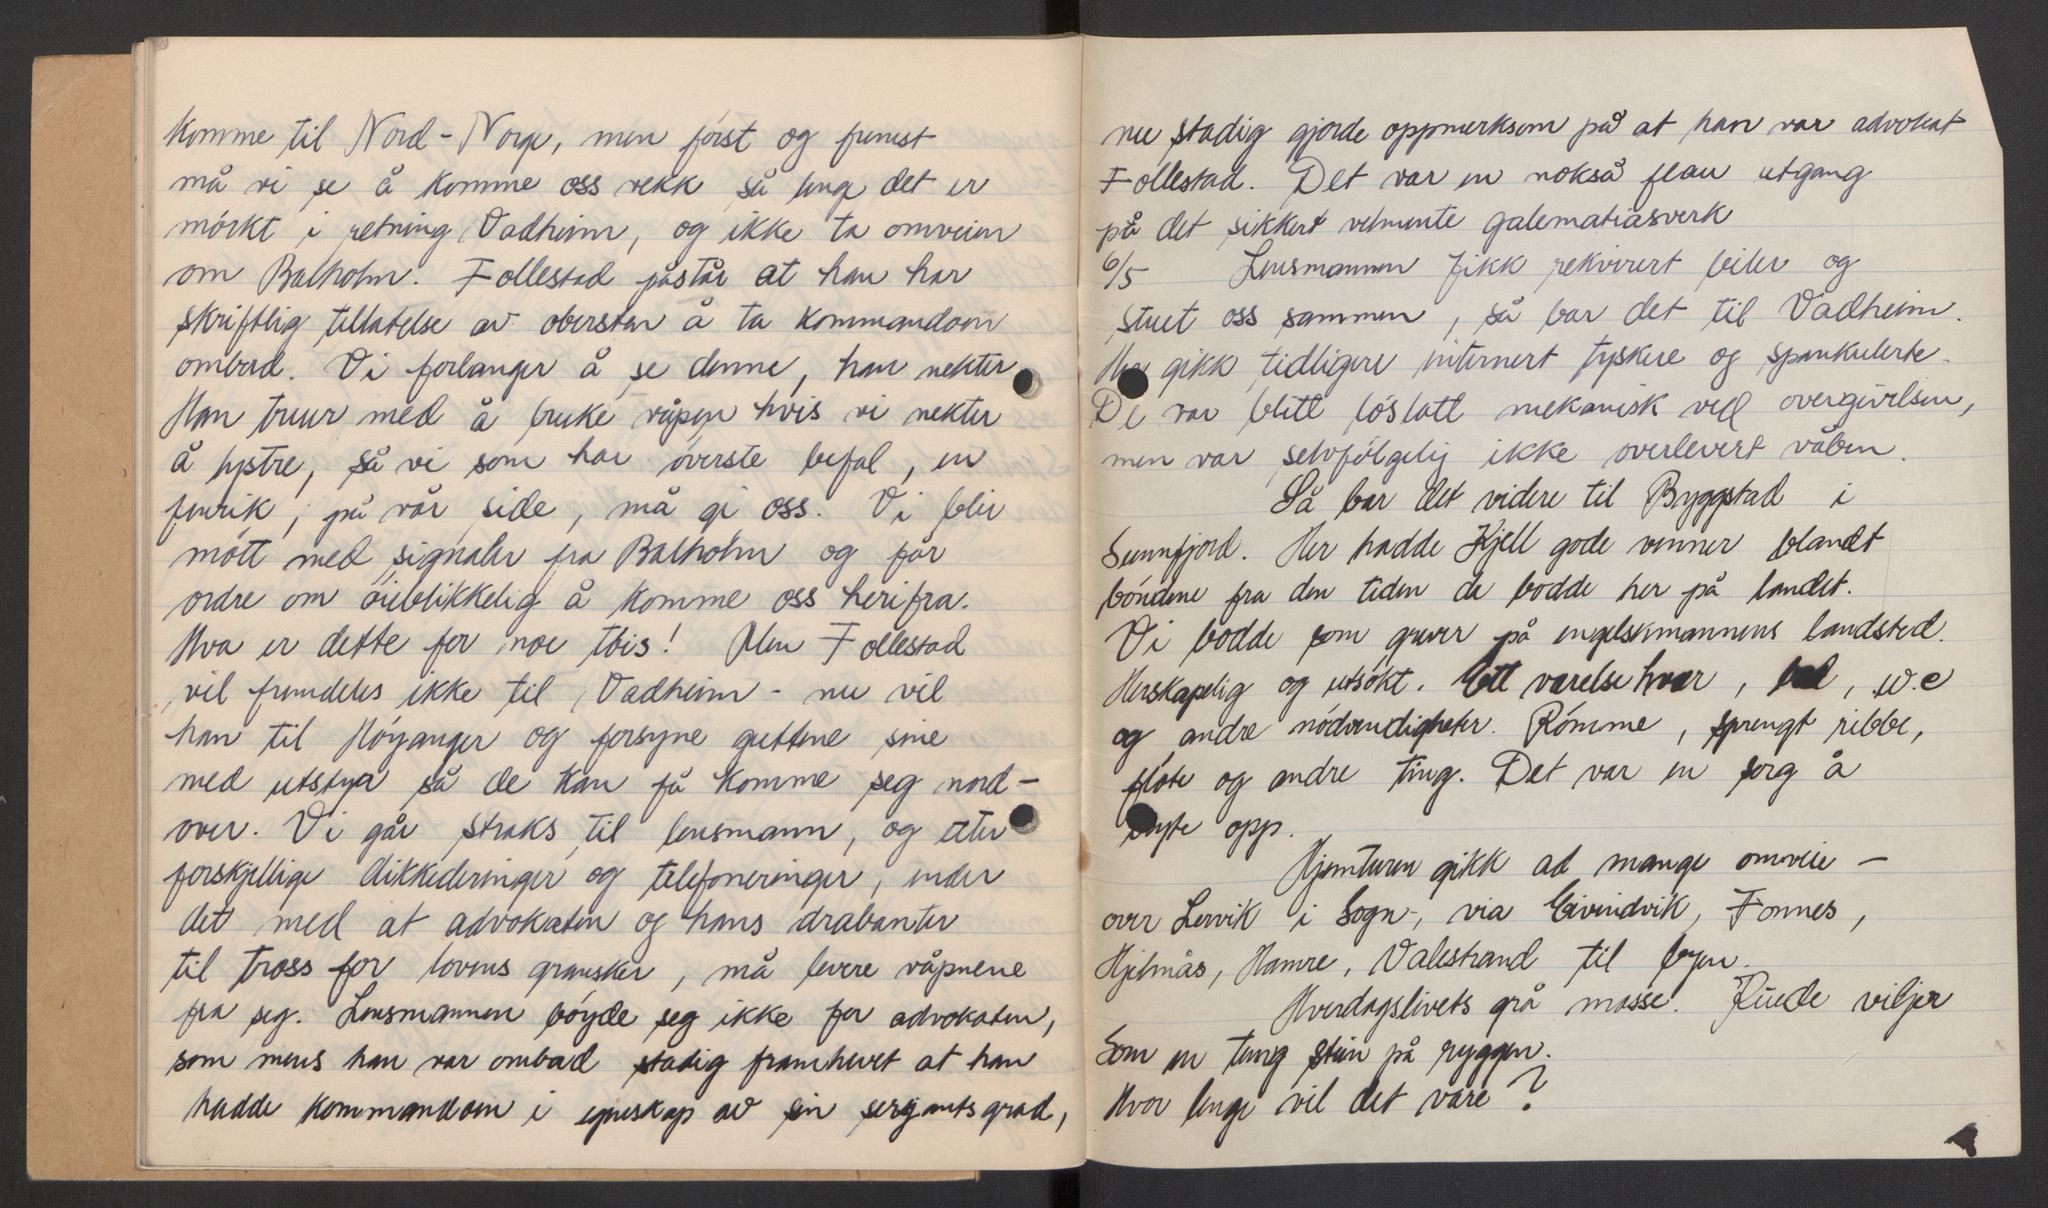 komme til Nord-Norge, men först og fremst
må vi se å komme oss vekk så lenge det er
mörkt i retning Vadheim, og ikke ta omveien
om Balholm. Follestad påstår at han har
skriftlig tillatelse av obersten å ta kommandoen
ombord. Vi forlanger å se denne, han nekter.
Han truer med å bruke våpen hvis vi nekter
å lystre, så vi som har överste befal, en
fenrik, på vår side, må gi oss. Vi blir
mött med signaler fra Balholm og får
ordre om öieblikkelig å komme oss herifra.
Hva er dette for noe töis! Men Follestad
vil fremdeles ikke til Vadheim - nu vil
han til Höyanger og forsyne guttene sine
med utstyr så de kan få komme seg nord-
over. Vi går straks til lensmann, og etter
forskjellige dikkederinger og telefoneringer, ender
det med at advokaten og hans drabanter
til tross for lovens gransker, må levere våpnene
fra seg. Lensmannen böyde seg ikke for advokaten,
som mens han var ombord stadig fremhevet at han
hadde kommandoen i egenskap av sin sergants grad,
nu stadig gjorde oppmerksom på at han var advokat
Follestad. Det var en nokså flau utgang
på det sikkert velmente galematiasverk
6/5 Lensmannen fikk rekvirert biler og
stuet oss sammen, så bar det til Vadheim.
Her gikk tidligere internert tyskere og spankulerte.
De var blitt löslatt mekanisk ved overgivelsen,
men var selvfölgelig ikke overlevert våben.
Så bar det videre til Byggstad i
Sunnfjord. Her hadde Kjell gode venner blandt
böndene fra den tiden de bodde her på landet.
Vi bodde som grever på engelskmannens landsted.
Herskapelig og utsökt. Ett værelse hver, bad, w.c
og andre nödvendigheter. Römme, sprengt ribbe,
flöte og andre ting. Det var en sorg å
bryte opp.
Hjemturen gikk ad mange omveie -
over Lervik i Sogn, via Eivindvik, Fonnes,
Hjelmås, Hamre, Valestrand til byen.
Hverdagslivets grå masse. Fiende viljer
Som en tung stein på ryggen.
Hvor lenge vil det vare?